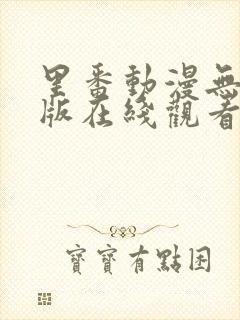 里番動漫無
版在綫觀看
寶寶有點困